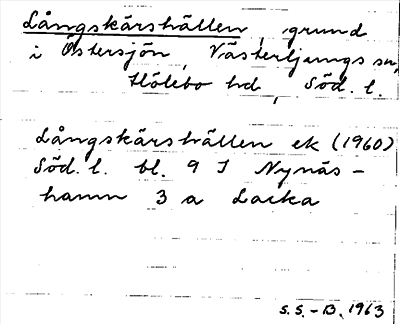 Långskärshällen, grund
i Östersjön, Västerljungs sn,
Hölebo hd, Söd. l.
Långskärshällen ek (1960)
Söd. l. bl. 9 I Nynäs-
hamn 3 a Lacka
S.S.-B. 1963